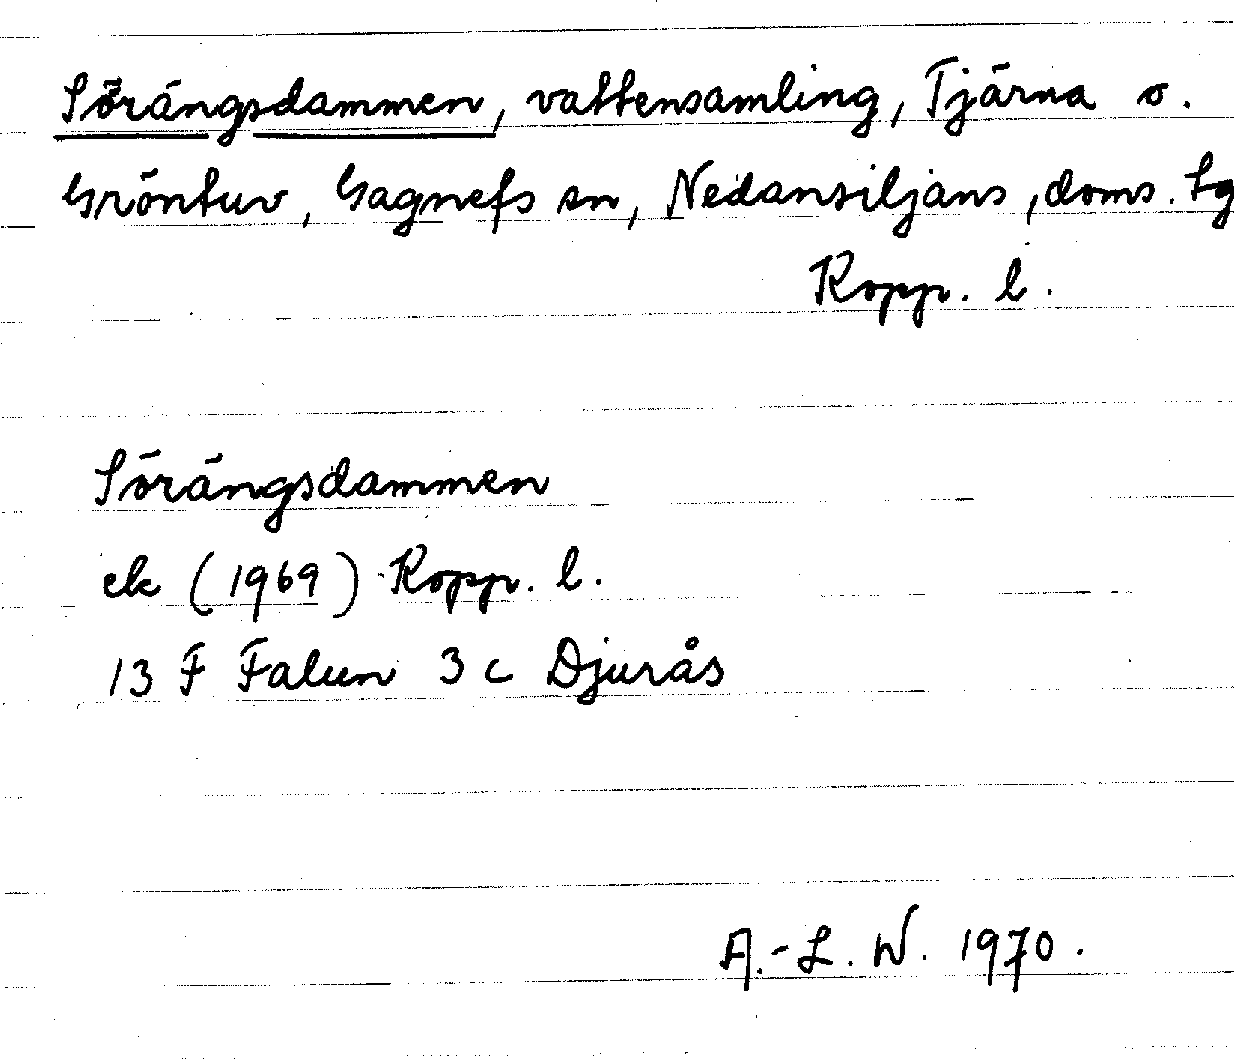 Sörängsdammen, vattensamling, Tjärna o.
Gröntuv, Gagnefs sn, Nedansiljans, doms. tg
Kopp. l.
Sörängsdammen
ek (1969) Kopp. l.
13 F Falun 3 c Djurås
A.-L. W. 1970.